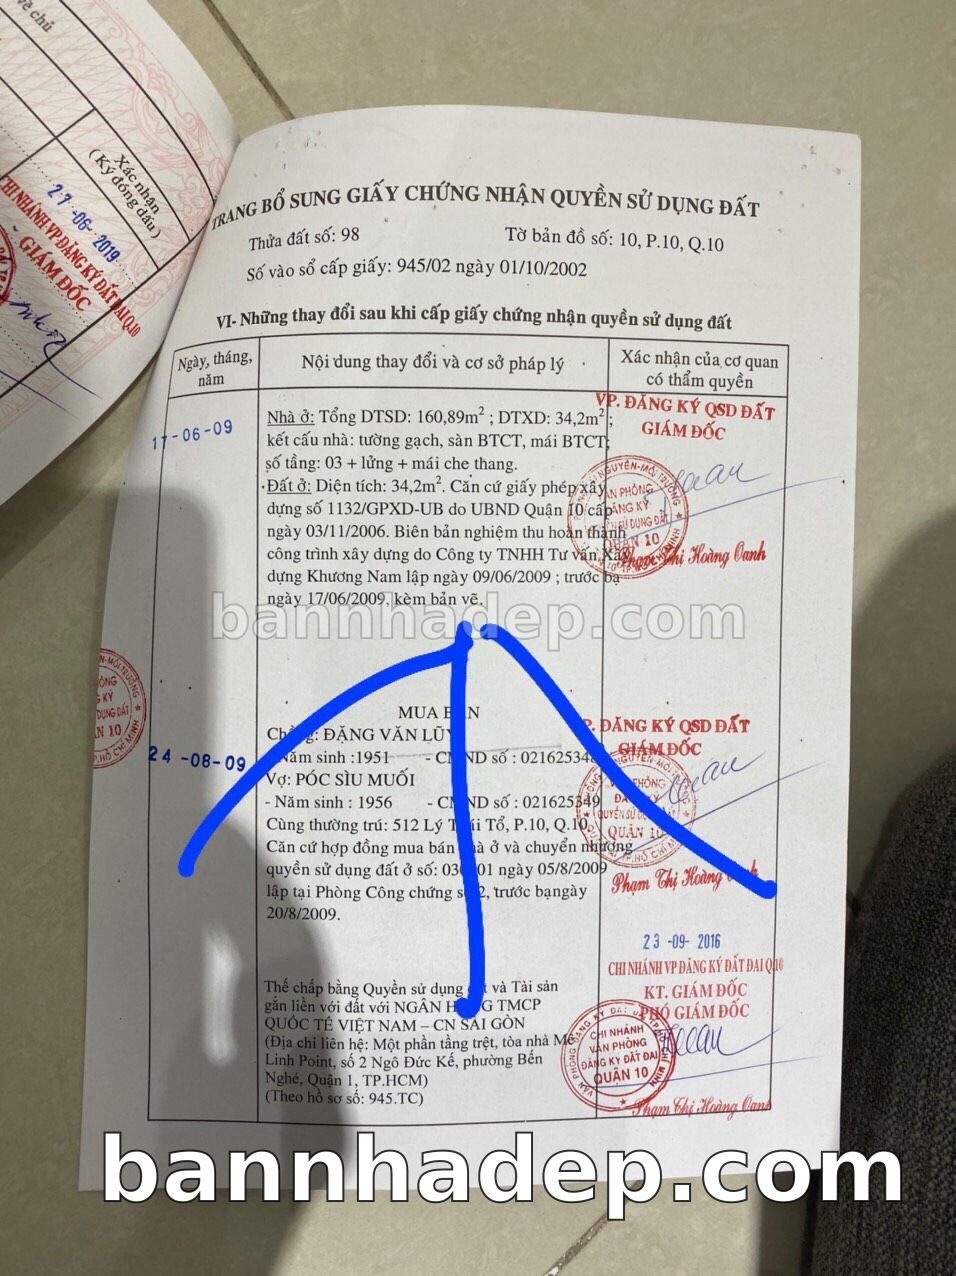 về chủ
Xác nhận
(Ký đóng dấu)
27-06-2019
CHI NHÁNH VP ĐĂNG KÝ ĐẤT ĐAI Q.10
GIÁM ĐỐC
TRANG BỔ SUNG GIẤY CHỨNG NHẬN QUYỀN SỬ DỤNG ĐẤT
Thửa đất số: 98
Tờ bản đồ số: 10, P.10, Q.10
Số vào sổ cấp giấy: 945/02 ngày 01/10/2002
VI- Những thay đổi sau khi cấp giấy chứng nhận quyền sử dụng đất
Ngày, tháng,
năm
Nội dung thay đổi và cơ sở pháp lý
Xác nhận của cơ quan
có thẩm quyền
17-06-09
Nhà ở: Tổng DTSD: 160,89m²; DTXD: 34,2m²;
kết cấu nhà: tường gạch, sàn BTCT, mái BTCT;
số tầng: 03 + lửng + mái che thang.
Đất ở: Diện tích: 34,2m². Căn cứ giấy phép xây
dựng số 1132/GPXD-UB do UBND Quận 10 cấp
ngày 03/11/2006. Biên bản nghiệm thu hoàn thành
công trình xây dựng do Công ty TNHH Tư vấn Xây
dựng Khương Nam lập ngày 09/06/2009 ; trước bạ
ngày 17/06/2009, kèm bản vẽ.
VP. ĐĂNG KÝ QSD ĐẤT
GIÁM ĐỐC
VĂN PHÒNG
ĐĂNG KÝ
QUYỀN SỬ DỤNG ĐẤT
QUẬN 10
Phạm Thị Hoàng Oanh
bannhadep.com
24-08-09
MUA BÁN
Chồng: ĐẶNG VĂN LŨY
- Năm sinh :1951 - CMND số : 02162534
Vợ: PÓC SÌU MUỐI
- Năm sinh : 1956 - CMND số : 021625349
Cùng thường trú: 512 Lý Thái Tổ, P.10, Q.10.
Căn cứ hợp đồng mua bán nhà ở và chuyển nhượng
quyền sử dụng đất ở số: 01 ngày 05/8/2009
lập tại Phòng Công chứng số 2, trước bạ ngày
20/8/2009.
VP. ĐĂNG KÝ QSD ĐẤT
GIÁM ĐỐC
VĂN PHÒNG
ĐĂNG KÝ
QUYỀN SỬ DỤNG ĐẤT
QUẬN 10
Phạm Thị Hoàng Oanh
Thế chấp bằng Quyền sử dụng đất và Tài sản
gắn liền với đất với NGÂN HÀNG TMCP
QUỐC TẾ VIỆT NAM – CN SÀI GÒN
(Địa chỉ liên hệ: Một phần tầng trệt, tòa nhà Mê
Linh Point, số 2 Ngô Đức Kế, phường Bến
Nghé, Quận 1, TP.HCM)
(Theo hồ sơ số: 945.TC)
23-09-2016
CHI NHÁNH VP ĐĂNG KÝ ĐẤT ĐAI Q.10
KT. GIÁM ĐỐC
PHÓ GIÁM ĐỐC
CHI NHÁNH
VĂN PHÒNG
ĐĂNG KÝ ĐẤT ĐAI
QUẬN 10
Phạm Thị Hoàng Oanh
bannhadep.com